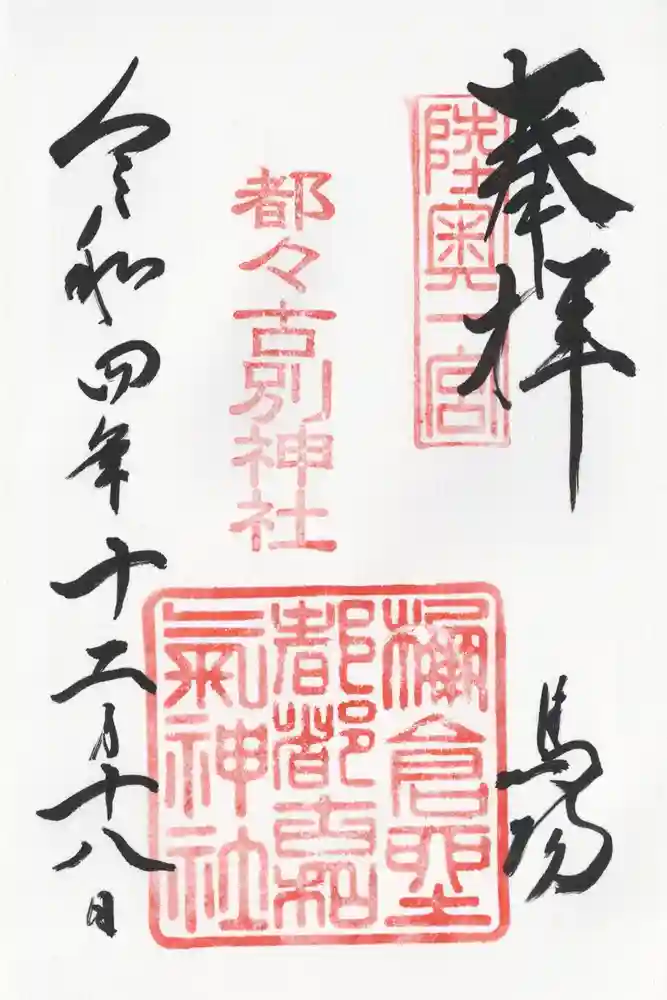 奉拝
陸奥一宮
馬場
都々古別神社
棚倉野
都都古和
氣神社
令和四年十二月十八日